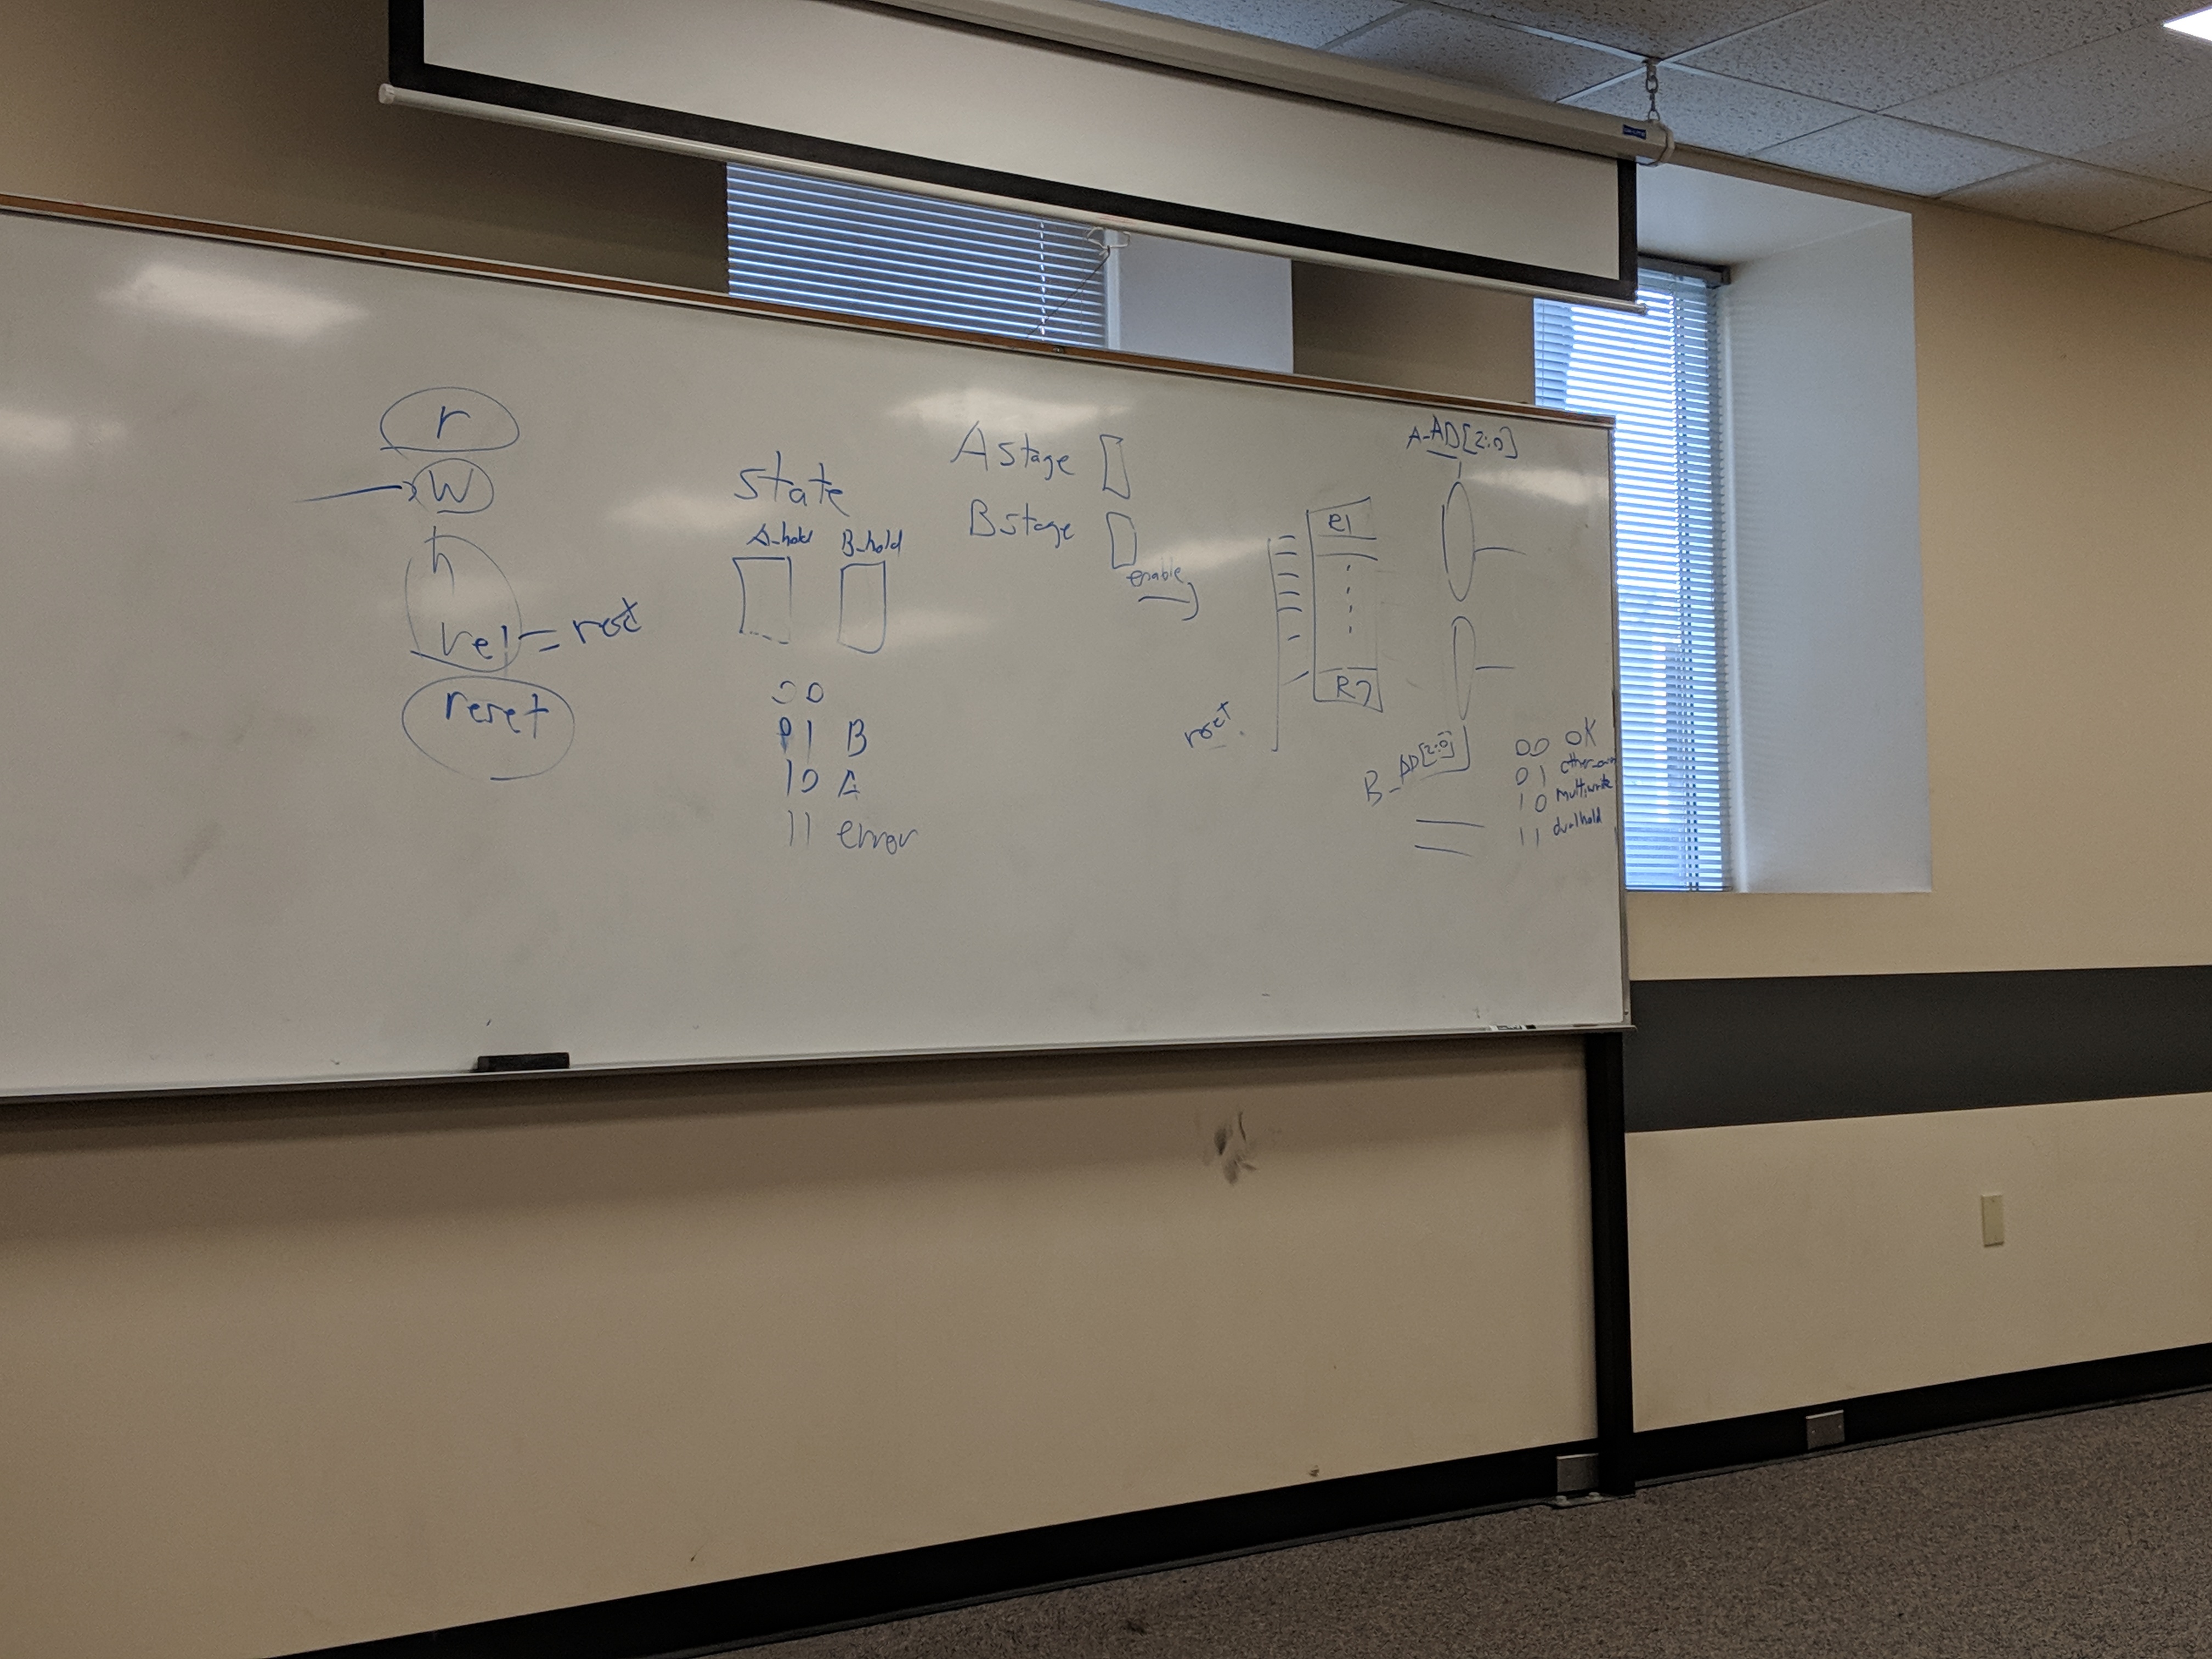 r
W
h
rel =
reset
state
A-hold B-hold
00
01 B
10 A
11 error
A stage
B stage
enable
R1
R7
A-AD[2:0]
B-AD[2:0]
00 OK
01
10 multiwrite
11 dualhold